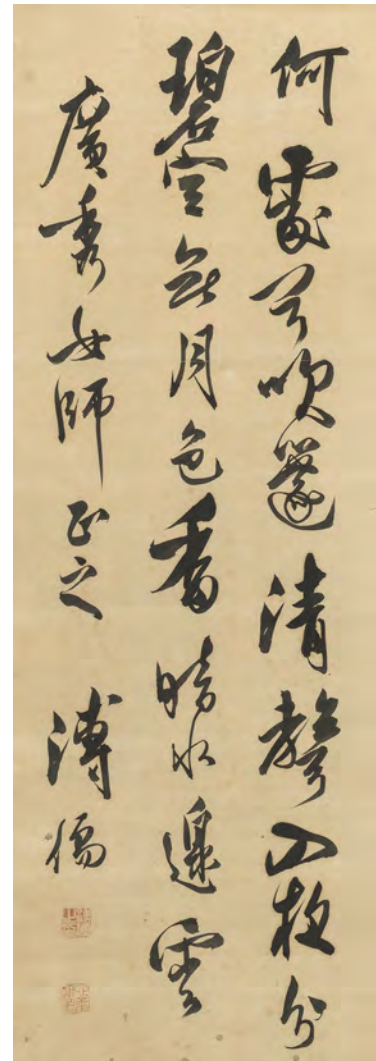 何處兮吹篴清聲入夜分
碧空無月色香暗水邊雲
廣秀女師正之 溥儒